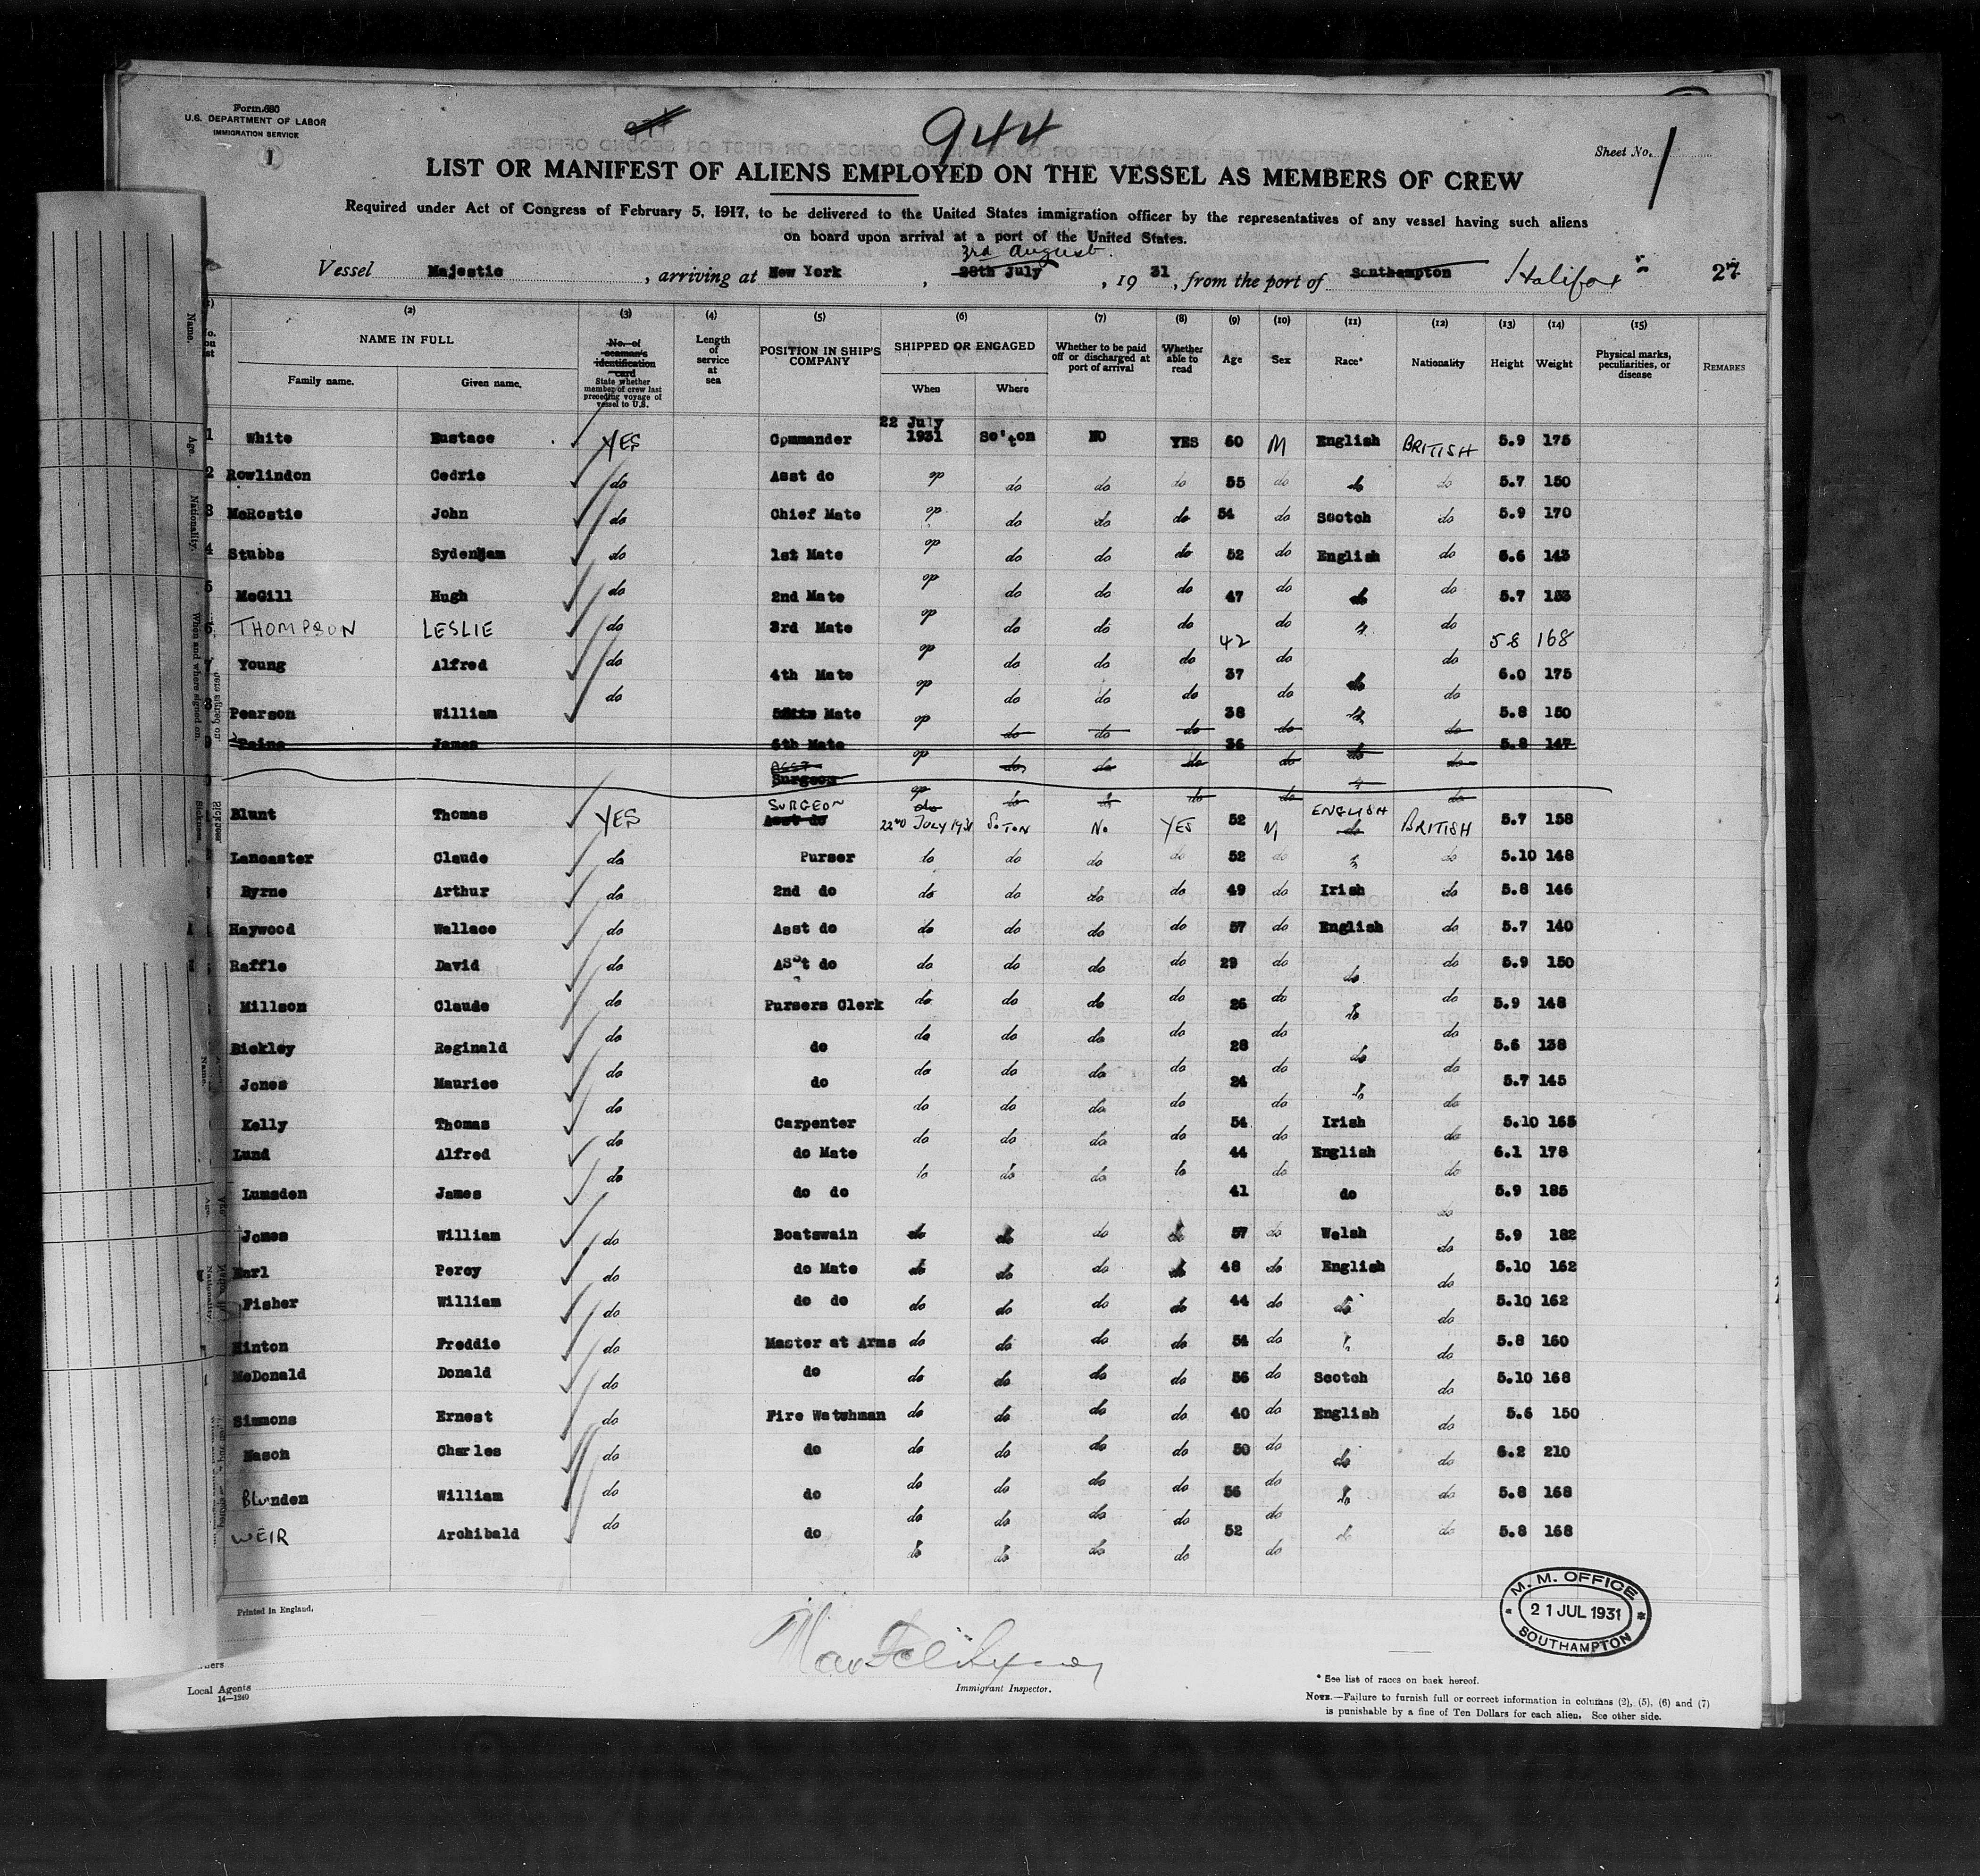 Form 680
U.S. DEPARTMENT OF LABOR
IMMIGRATION SERVICE
1
944
Sheet No. 1
LIST OR MANIFEST OF ALIENS EMPLOYED ON THE VESSEL AS MEMBERS OF CREW
Required under Act of Congress of February 5, 1917, to be delivered to the United States immigration officer by the representatives of any vessel having such aliens
on board upon arrival at a port of the United States.
3rd August
Vessel Majestic, arriving at New York, 28th July, 1931, from the port of Southampton Halifax 27
(2) (3) (4) (5) (6) (7) (8) (9) (10) (11) (12) (13) (14) (15)
NAME IN FULL
Family name. Given name.
No. of seaman's identification card
State whether member of crew last preceding voyage of vessel to U.S.
Length of service at sea
POSITION IN SHIP'S COMPANY
SHIPPED OR ENGAGED
When Where
Whether to be paid off or discharged at port of arrival
Whether able to read
Age Sex Race* Nationality Height Weight
Physical marks, peculiarities, or disease
REMARKS
1 White Eustace YES Commander 22 July 1931 So'ton NO YES 60 M English BRITISH 5.9 175
2 Rowlindon Cedric do Asst do do do do do 55 do do do 5.7 150
3 McRostie John do Chief Mate do do do do 54 do Scotch do 5.9 170
4 Stubbs Sydenham do 1st Mate do do do do 52 do English do 5.6 143
5 McGill Hugh do 2nd Mate do do do do 47 do do do 5.7 153
6 THOMPSON LESLIE do 3rd Mate do do do do 42 do do do 5 8 168
7 Young Alfred do 4th Mate do do do do 37 do do do 6.0 175
8 Pearson William do Mate do do do do 38 do do do 5.8 150
9 Paine James 6th Mate do do do do 36 do do do 5.8 147
ASST Surgeon do do do do do do do
Blunt Thomas YES SURGEON Asst do 22ND JULY 1931 So TON No YES 52 M ENGLISH do BRITISH 5.7 158
Lancaster Claude do Purser do do do do 52 do do do 5.10 148
Byrne Arthur do 2nd do do do do do 49 do Irish do 5.8 146
Haywood Wallace do Asst do do do do do 57 do English do 5.7 140
Raffle David do ASst do do do do do 29 do do do 5.9 150
Millson Claude do Pursers Clerk do do do do 26 do do do 5.9 148
Bickley Reginald do do do do do do 28 do do do 5.6 138
Jones Maurice do do do do do do 24 do do do 5.7 145
Kelly Thomas do Carpenter do do do do 54 do Irish do 5.10 165
Lund Alfred do do Mate do do do do 44 do English do 6.1 178
Lumsden James do do do do do do do 41 do do do 5.9 185
Jones William do Boatswain do do do do 57 do Welsh do 5.9 182
Earl Percy do do Mate do do do do 48 do English do 5.10 162
Fisher William do do do do do do do 44 do do do 5.10 162
Hinton Freddie do Master at Arms do do do do 54 do do do 5.8 160
McDonald Donald do do do do do do 56 do Scotch do 5.10 168
Simmons Ernest do Fire Watchman do do do do 40 do English do 5.6 150
Mason Charles do do do do do do 50 do do do 6.2 210
Blunden William do do do do do do 56 do do do 5.8 168
WEIR Archibald do do do do do do 52 do do do 5.8 168
M. M. OFFICE
21 JUL 1931
SOUTHAMPTON
Printed in England.
Local Agents
14—1240
Immigrant Inspector.
* See list of races on back hereof.
NOTE.—Failure to furnish full or correct information in columns (2), (5), (6) and (7)
is punishable by a fine of Ten Dollars for each alien. See other side.